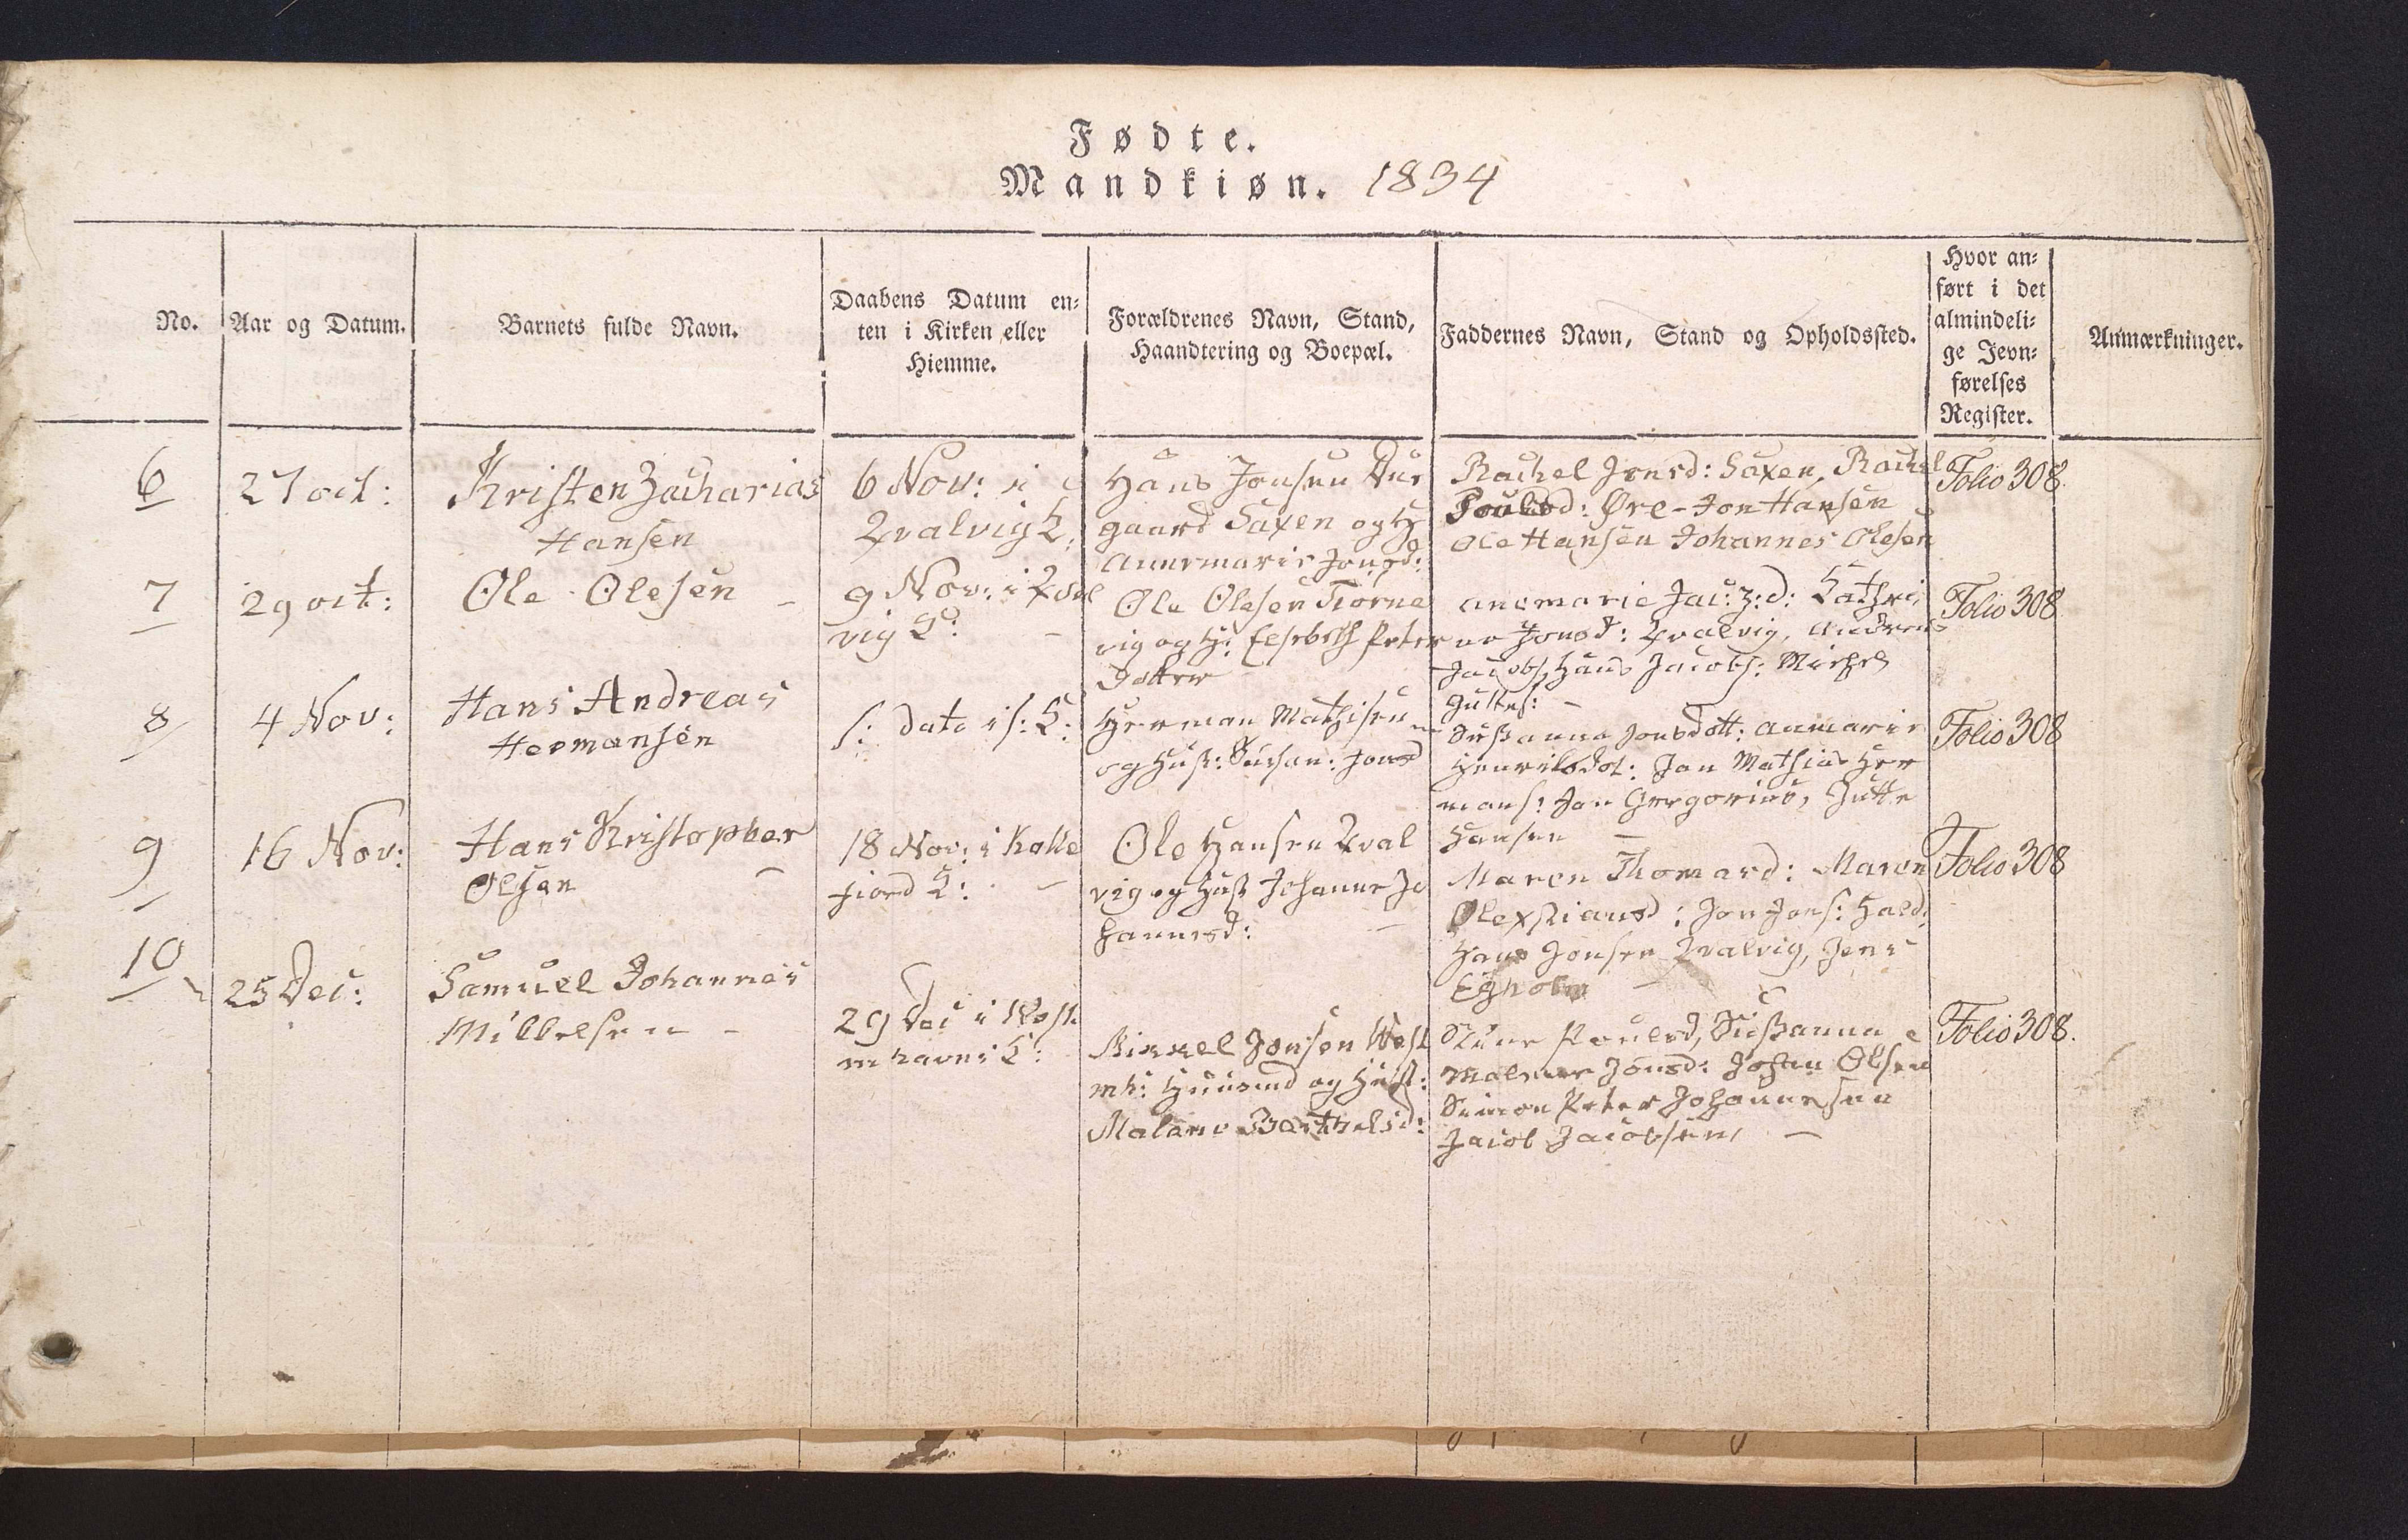 Fødte.
Mandkiøn. 1834
No.
Aar og Datum.
Barnets fulde Navn.
Daabens Datum en-
ten i Kirken eller
Hiemme.
Forældrenes Navn, Stand,
Haandtering og Boepæl.
Faddernes Navn, Stand og Opholdssted.
Hvor an-
ført i det
almindeli-
ge Jevn-
førelses
Register.
Anmærkninger.
6
27 oct:
Kristen Zacharias
Hansen
6 Nov: i
Qvalvig K:
Hans Jonsen Dur
gaard Saxen og H
Annemarie Jonsd:
Rachel Jonsd: Saxen, Rachel
Poulsd: Øre - Jon Hansen
Ole Hansen Johannes Olesen
Folio 308.
7
29 oct:
Ole Olesen -
9 Nov: i Qval
vig K: -
Ole Olesen Tiørne
vig og H: Elsebeth Peters
Datter
Annemarie Jac: d: Cathri
ne Jonsd: Qvalvig, Andreas
Jacobs, Hans Jacobs: Michel
Guttes: -
Folio 308
8
4 Nov:
Hans Andreas
Hermansen
s: Dato i s: K:
Herman Mathisen
og Hust: Susan: Jonsd
Susanna Jonsdott: Anmarie
Henriksdot: Jon Mathias Her
mans: Jon Gregorius, Jutte
Hansen -
Folio 308
9
16 Nov:
Hans Kristopher
Olsen -
18 Nov: i Kolle
fiord K: -
Ole Hansen Qval
vig og Hust Johanne Jo
hannesd: -
Maren Thomasd: Maren
Olexsiansd: Jon Jons: Hald:
Hans Jonsen Qvalvig, Jens
Egholm -
Folio 308
10
25 Dec:
Samuel Johannes
Mikkelsen -
29 Dec i West
mhavns K:
Mikkel Jonsen West
mh: Huusmd og Hust:
Malene Barthelsd:
Poulsd, Susanna
Malene Jonsd: Johan Olsen
Simon Peter Johannesen
Jacob Jacobsen, -
Folio 308.